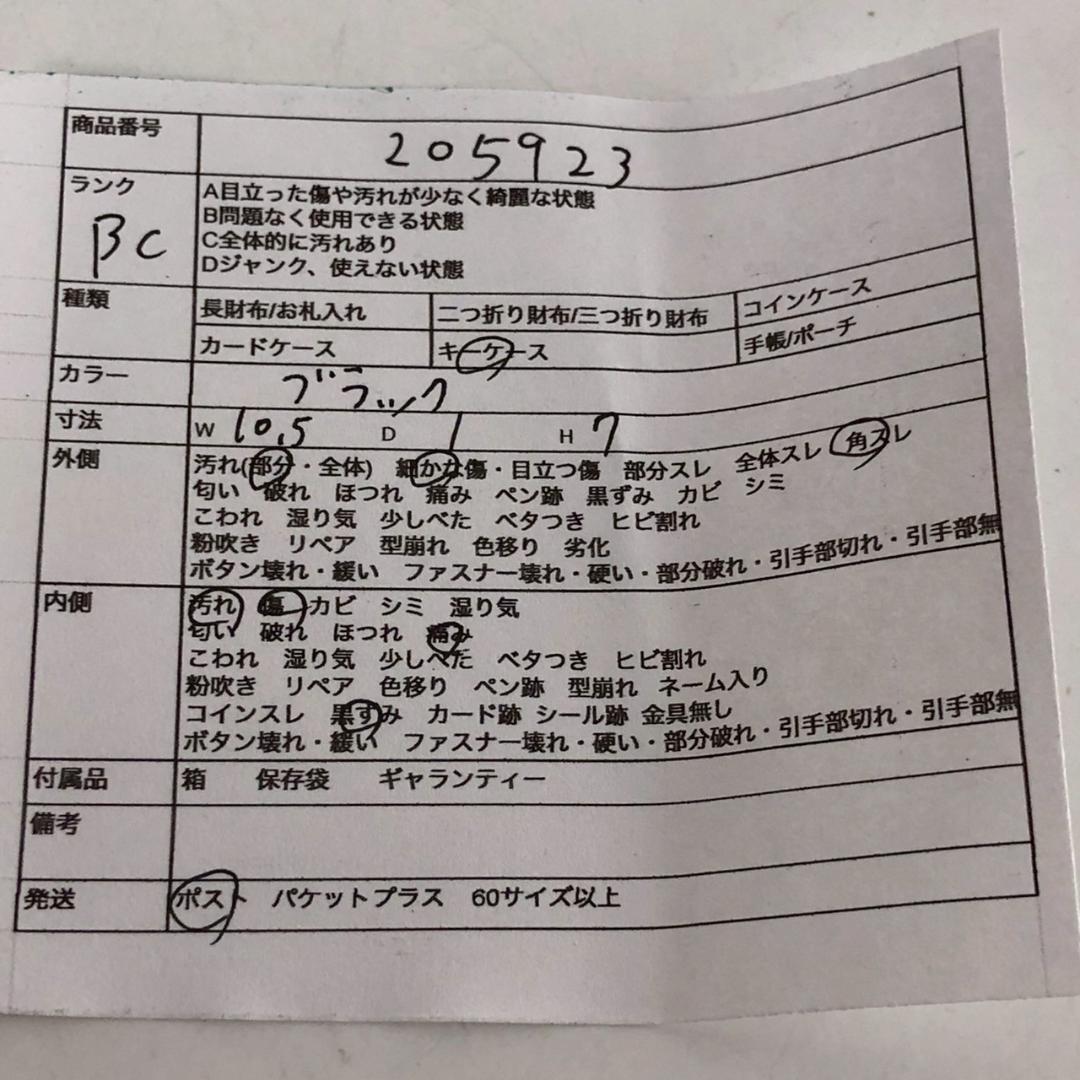 商品番号 205923
ランク BC
A目立った傷や汚れが少なく綺麗な状態
B問題なく使用できる状態
C全体的に汚れあり
Dジャンク、使えない状態
種類 長財布/お札入れ 二つ折り財布/三つ折り財布 コインケース
カードケース キーケース 手帳/ポーチ
カラー ブラック
寸法 W 10.5 D 1 H 7
外側 汚れ(部分・全体) 細かな傷・目立つ傷 部分スレ 全体スレ 角スレ
匂い 破れ ほつれ 痛み ペン跡 黒ずみ カビ シミ
こわれ 湿り気 少しべた ベタつき ヒビ割れ
粉吹き リペア 型崩れ 色移り 劣化
ボタン壊れ・緩い ファスナー壊れ・硬い・部分破れ・引手部切れ・引手部無
内側 汚れ 傷 カビ シミ 湿り気
匂い 破れ ほつれ 痛み
こわれ 湿り気 少しべた ベタつき ヒビ割れ
粉吹き リペア 色移り ペン跡 型崩れ ネーム入り
コインスレ 黒ずみ カード跡 シール跡 金具無し
ボタン壊れ・緩い ファスナー壊れ・硬い・部分破れ・引手部切れ・引手部無
付属品 箱 保存袋 ギャランティー
備考
発送 ポスト パケットプラス 60サイズ以上